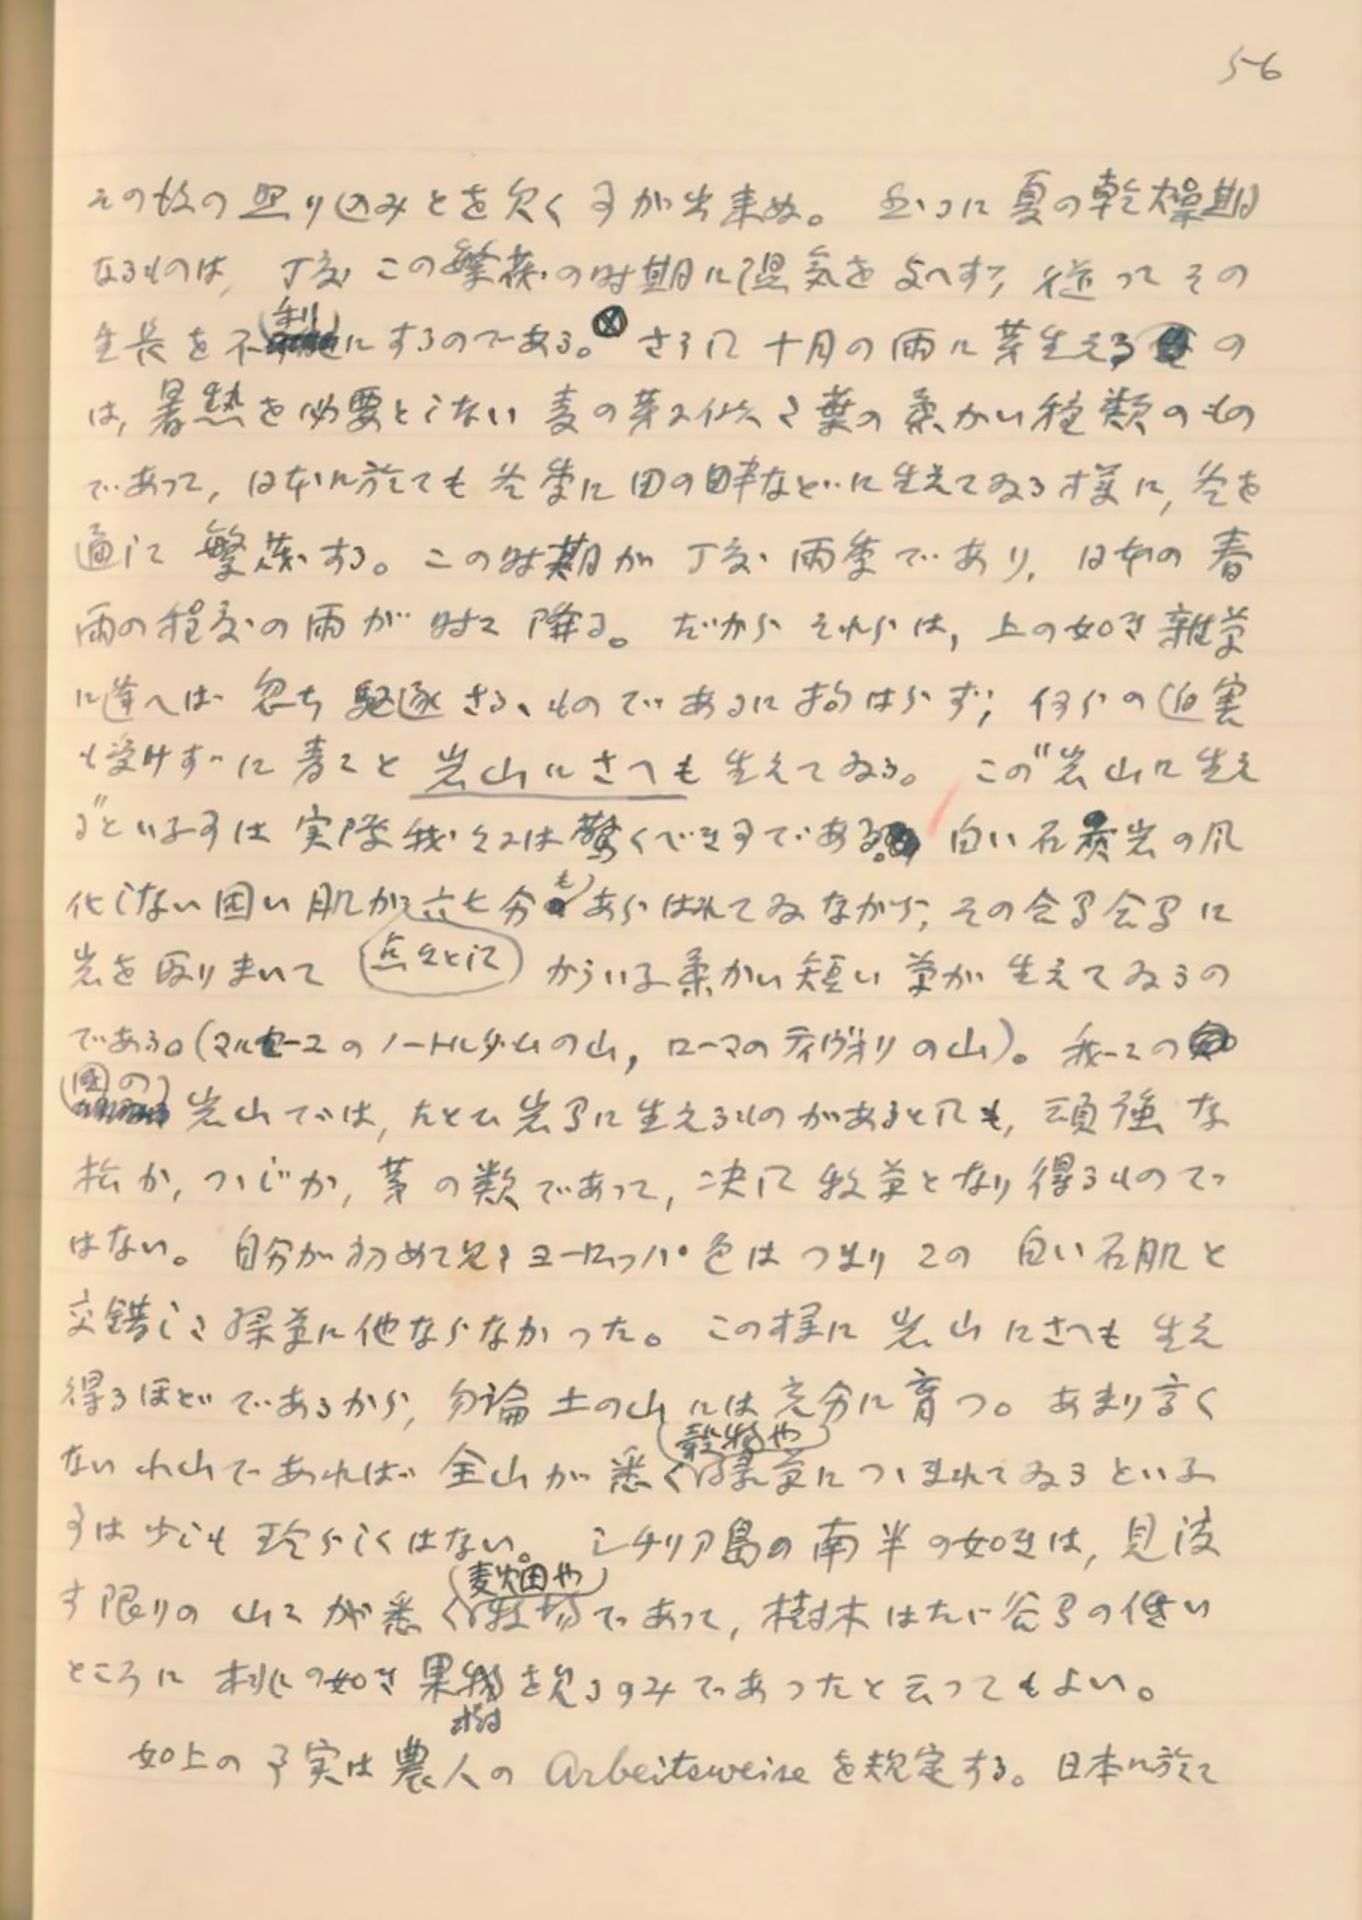 56
その故の照り込みとを欠く事が出来ぬ。 然るに夏の乾燥期
なるものは, 丁度この繁茂の时期に湿気を与へず, 従ってその
生長を不利にするのである。 さうして十月の雨に芽生えるの
は, 暑熱を必要としない麦の芽に似た葉の柔かい種類のもの
であって, 日本に於ても冬季に田の畔などに生えてゐる様に, 冬を
通じて繁茂する。この时期が丁度雨季であり, 日本の春
雨の程度の雨が时々降る。だからそれらは, 上の如き雑草
に逢へば忽ち駆逐さるゝものであるに拘はらず, 何らの迫害
も受けずに青々と岩山にさへも生えてゐる。 この"岩山に生え
る"といふ事は実際我々には驚くべき事である。 白い石灰岩の风
化しない固い肌が六七分もあらはれてゐながら, その合間合間に
岩を取りまいて 点々として からいふ柔かい短い草が生えてゐるの
である。(マルセーユのノートルダムの山, ローマのティヴォリの山)。我々の
国の岩山では, たとひ岩間に生えるものがあるとしても, 頑強な
松か, つゝじか, 茅の類であって, 决して牧草となり得るもので
はない。 自分が初めて見たヨーロッパ色はつまりこの白い石肌と
交錯した緑草に他ならなかった。この様に岩山にさへも生え
得るほどであるから, 勿論土の山には充分に育つ。あまり高く
ない小山であれば全山が悉く穀物や緑草につゝまれてゐるといふ
事は少しも珍らしくはない。 シチリア島の南半の如きは, 見渡
す限りの山々が悉く麦畑や牧場であって, 樹木はたゞ谷間の低い
ところに桃の如き果樹を見るのみであったと云ってもよい。
如上の事実は農人の Arbeitsweise を規定する。日本に於て